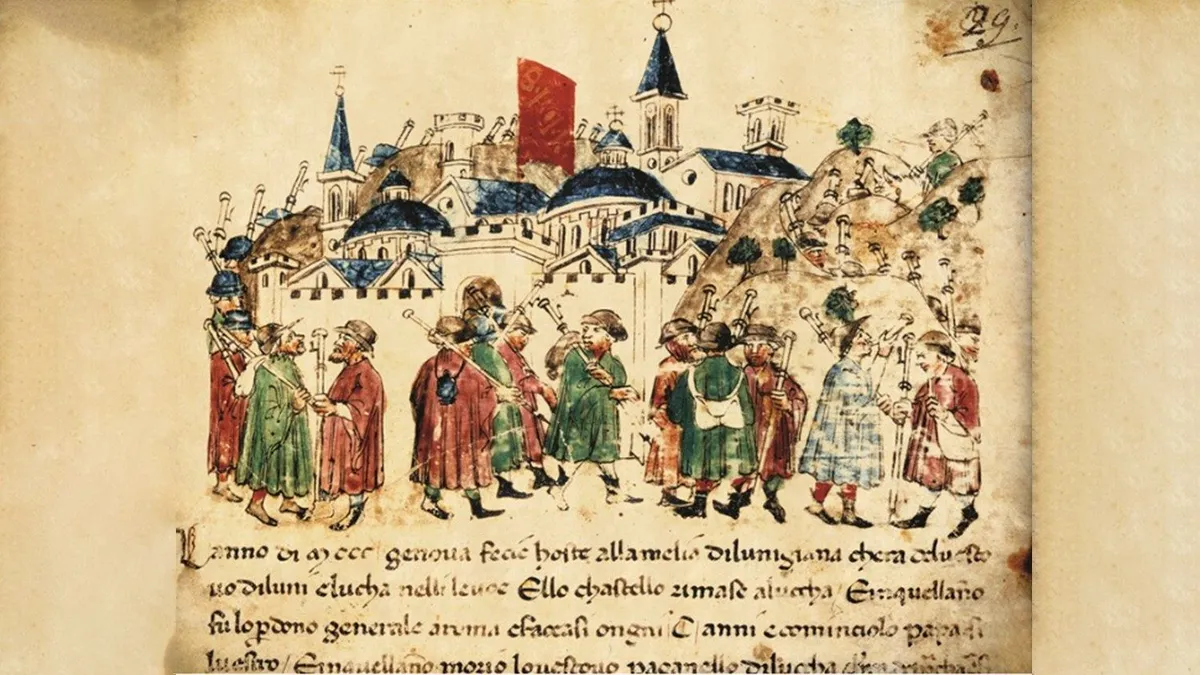 29.
Lanno di mccc genova fecie hoste allamelia dilunigiana chera delvesco
vo diluni elucha nelli levoe Ello chastello rimase aluccha / Einquellano
fu lo perdono generale aroma efaccasi ongni C anni ecominciolo papa si
luestro / Einquellano morio lovescovo paganello dilucha